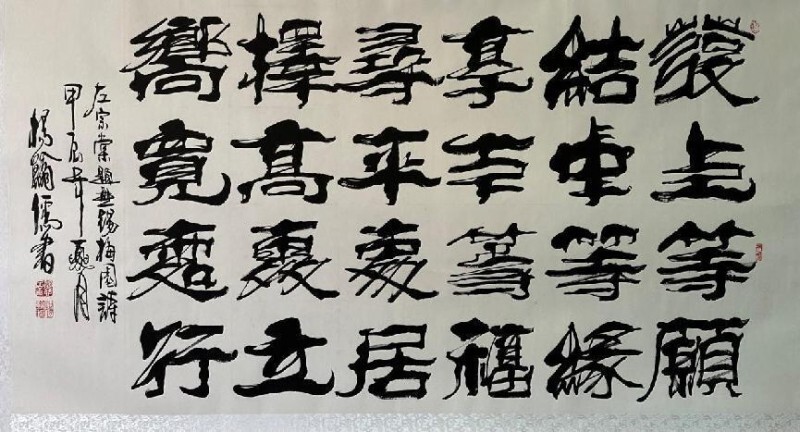 發上等願
結中等緣
享下等福
尋平處居
擇高處立
嚮寬處行
左宗棠題無錫梅園詩
甲辰年夏月
楊儒書